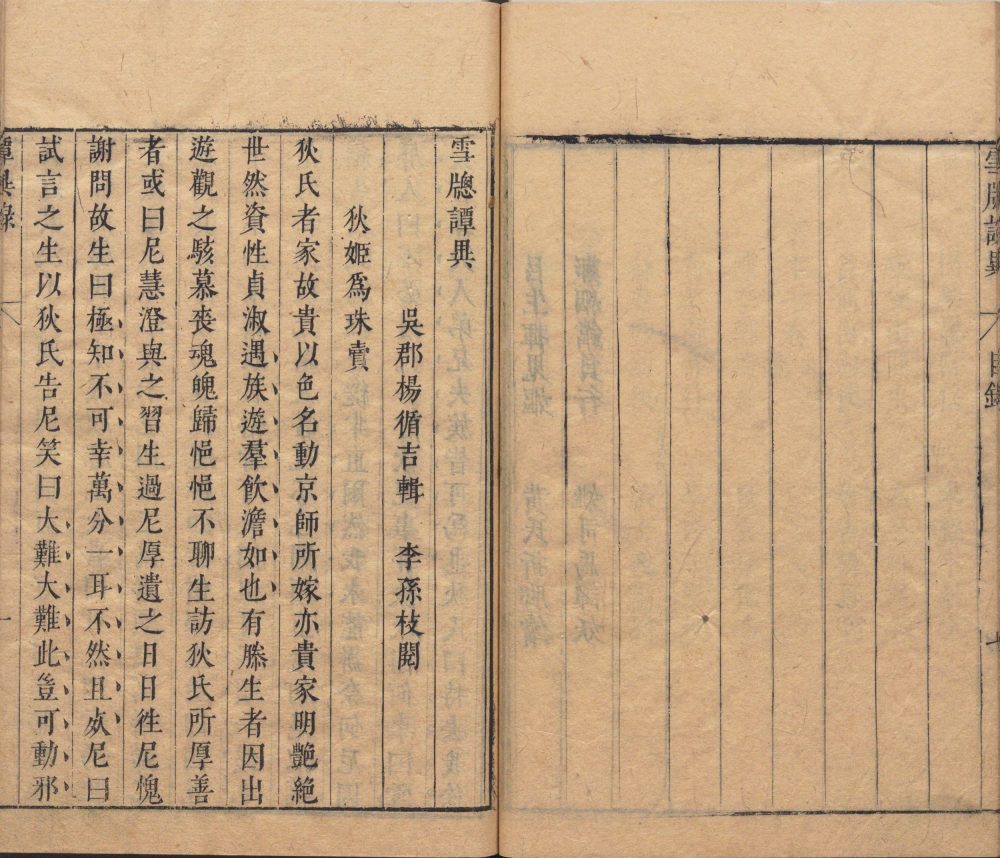 目錄
雪牕譚異
吳郡楊循吉輯　李孫枝閱
狄姬爲珠賣
狄氏者家故貴以色名動京師所嫁亦貴家明艷絕
世然資性貞淑遇族遊羣飲澹如也有滕生者因出
遊觀之駭慕丧魂魄歸悒悒不聊生訪狄氏所厚善
者或曰尼慧澄與之習生過尼厚遺之日日徃尼愧
謝問故生曰極知不可幸萬分一耳不然且死尼曰
試言之生以狄氏告尼笑曰大難大難此豈可動邪
譚異錄　一